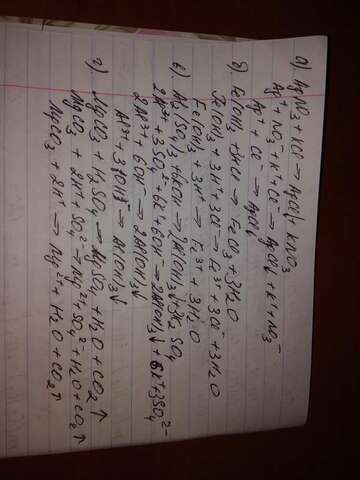 а) AgNO3 + KCl → AgCl↓ + KNO3
Ag⁺ + NO3⁻ + K⁺ + Cl⁻ → AgCl↓ + K⁺ + NO3⁻
Ag⁺ + Cl⁻ → AgCl↓
б) Fe(OH)3 + 3HCl → FeCl3 + 3H2O
Fe(OH)3 + 3H⁺ + 3Cl⁻ → Fe³⁺ + 3Cl⁻ + 3H2O
Fe(OH)3 + 3H⁺ → Fe³⁺ + 3H2O
в) Al2(SO4)3 + 6KOH → 2Al(OH)3↓ + 3K2SO4
2Al³⁺ + 3SO4²⁻ + 6K⁺ + 6OH⁻ → 2Al(OH)3↓ + 6K⁺ + 3SO4²⁻
2Al³⁺ + 6OH⁻ → 2Al(OH)3↓
Al³⁺ + 3OH⁻ → Al(OH)3↓
г) MgCO3 + H2SO4 → MgSO4 + H2O + CO2↑
MgCO3 + 2H⁺ + SO4²⁻ → Mg²⁺ + SO4²⁻ + H2O + CO2↑
MgCO3 + 2H⁺ → Mg²⁺ + H2O + CO2↑